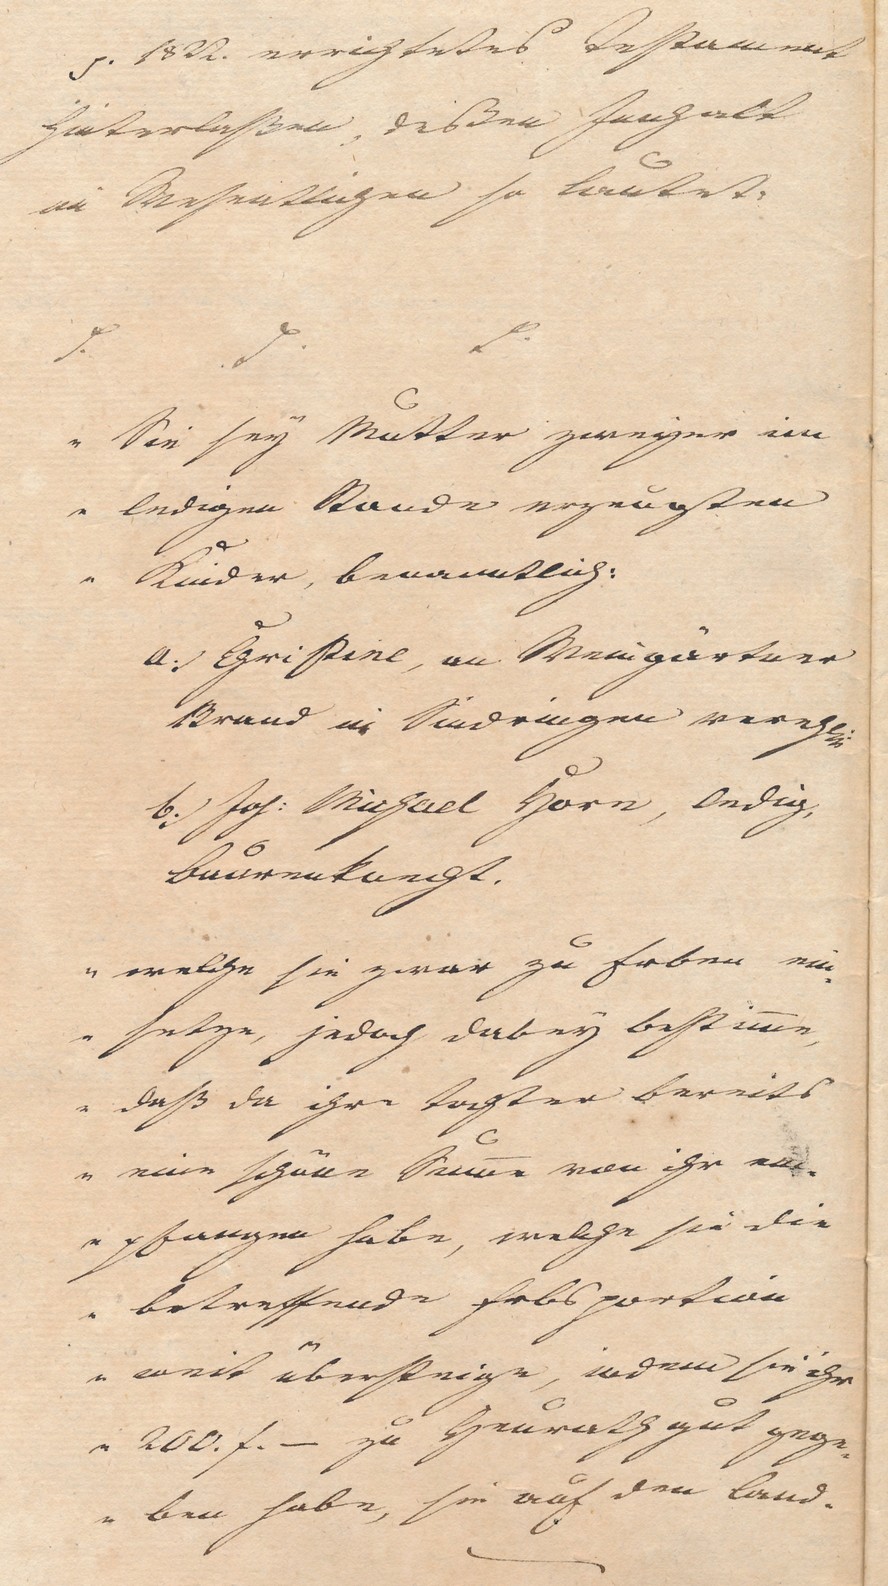 p. 1822. errichtetes Testament
hinterlaßen, deßen Innhalt
im Wesentlichen so lautet:
T. T. P.
" Sie sey Mutter zweyer im
" ledigen Stande erzeugten
" Kinder, benanntlich:
a.) Christine, an Weingärtner
Brand in Sindringen verehl:
b.) Joh: Michael Horn, ledig,
Baurenknecht.
" welche sie zwar zu Erben ein-
" setze, jedoch dabey bestimme,
" daß da ihre Tochter bereits
" eine schöne Summe von ihr em-
" pfangen habe, welche sie die
" betreffende Erbsportion
" weit übersteige, indem sie ihr
" 200. f. — zu Heurathgut gege-
" ben habe, sie auf den Land-